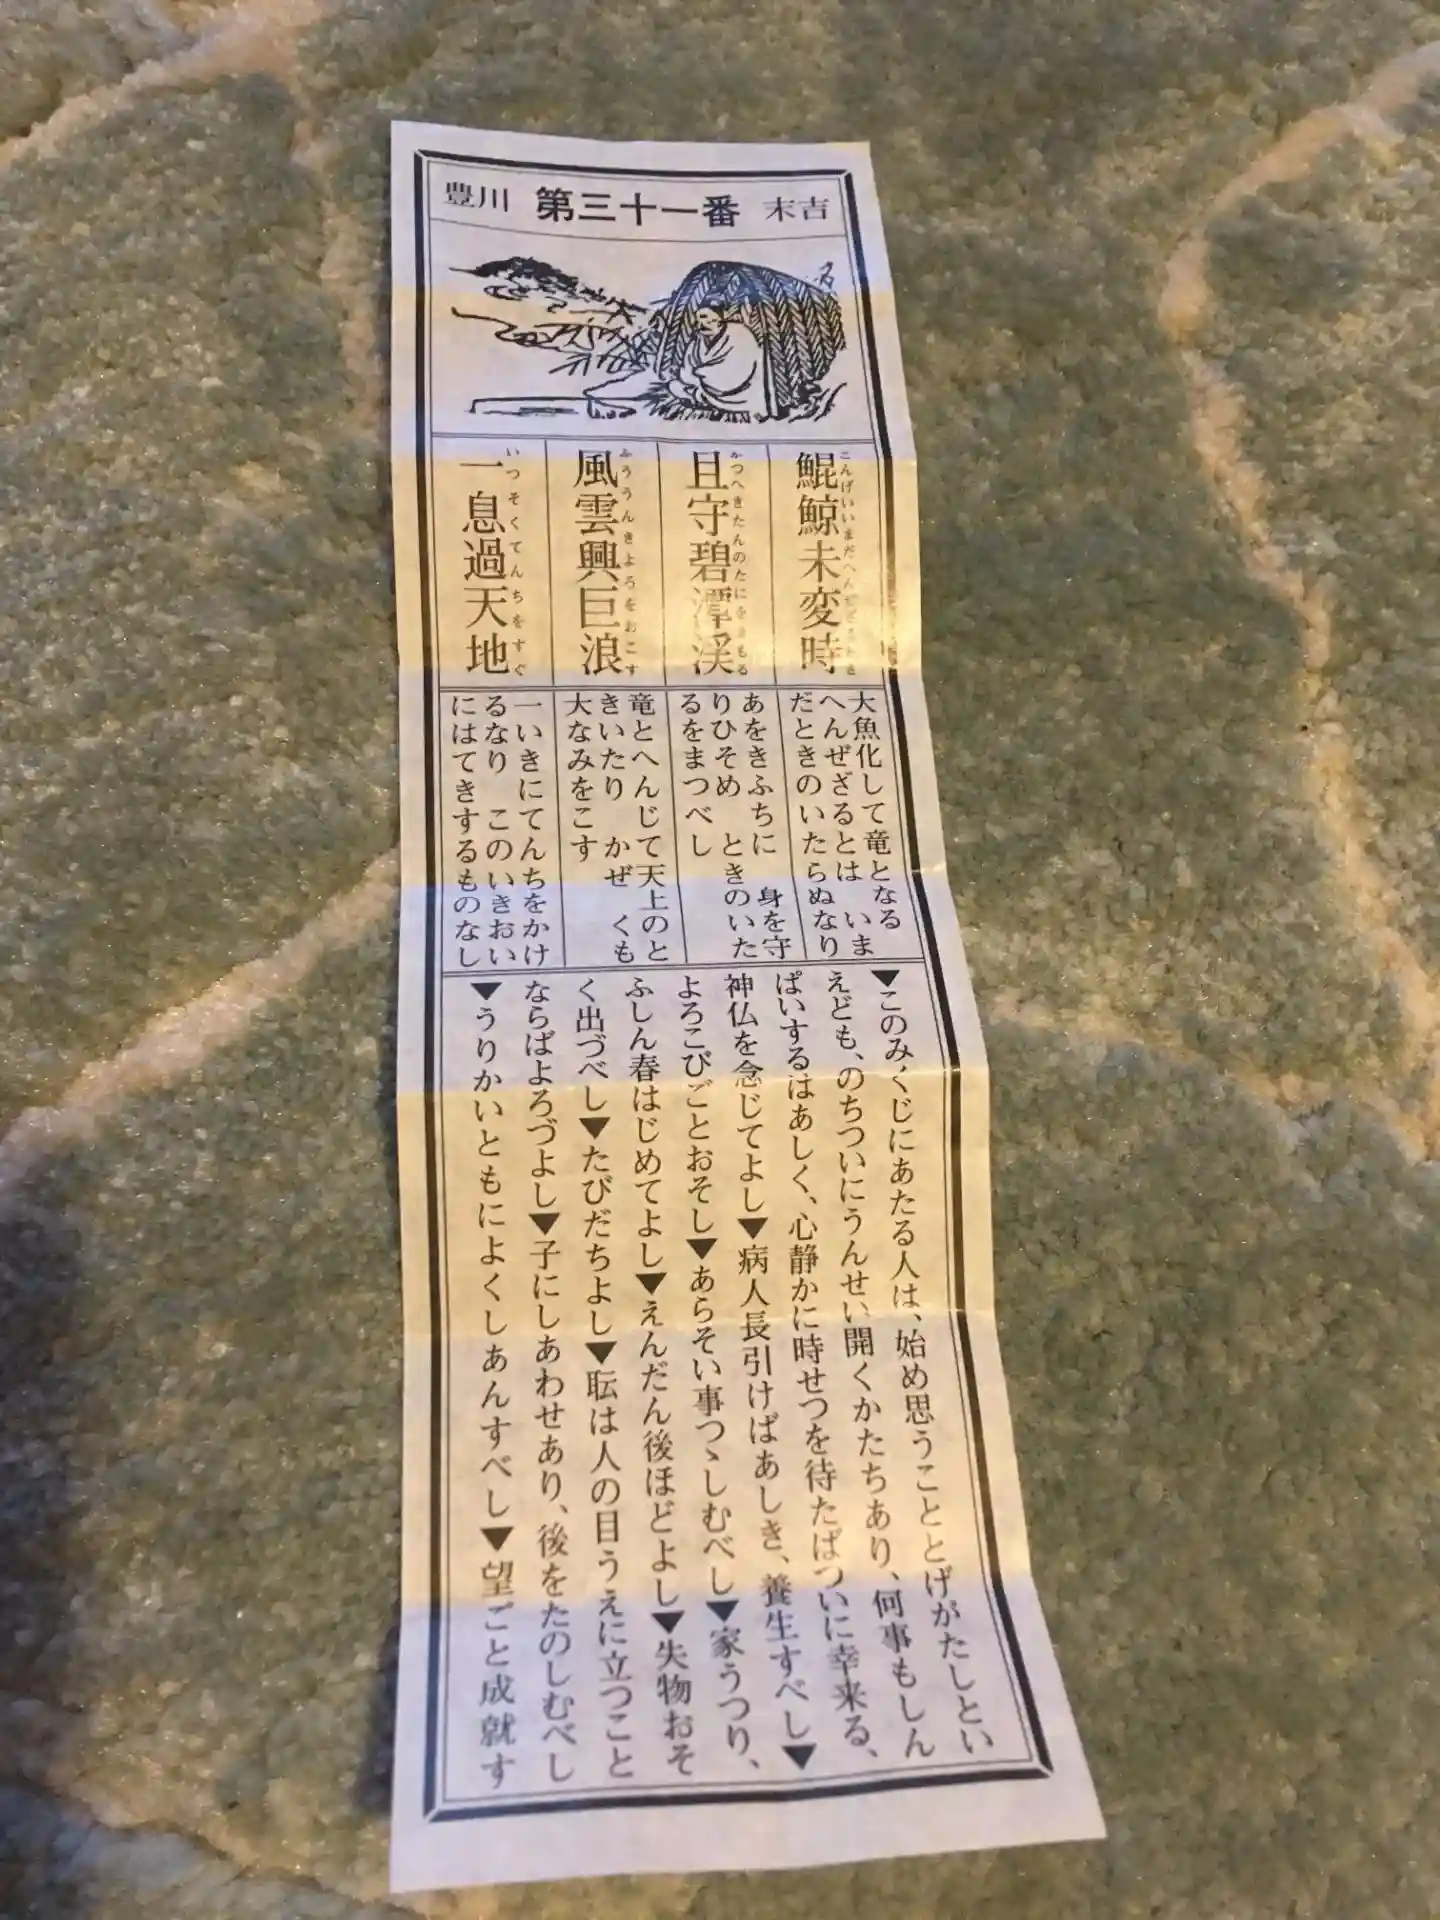 豊川 第三十一番 末吉
鯤鯨未変時
こんげいいまだへんぜざるとき
且守碧潭渓
かつへきたんのたにをまもる
風雲興巨浪
ふううんきよろをおこす
一息過天地
いつそくてんちをすぐ
大魚化して竜となる
へんぜざるとは いま
だときのいたらぬなり
あをきふちに 身を守
りひそめ ときのいた
るをまつべし
竜とへんじて天上のと
きいたり かぜ くも
大なみをこす
一いきにてんちをかけ
るなり このいきおい
にはてきするものなし
▼このみくじにあたる人は、始め思うこととげがたしとい
えども、のちついにうんせい開くかたちあり、何事もしん
ぱいするはあしく、心静かに時せつを待たばついに幸来る、
神仏を念じてよし▼病人長引けばあしき、養生すべし▼
よろこびごとおそし▼あらそい事つゝしむべし▼家うつり、
ふしん春はじめてよし▼えんだん後ほどよし▼失物おそ
く出づべし▼たびだちよし▼耺は人の目うえに立つこと
ならばよろづよし▼子にしあわせあり、後をたのしむべし
▼うりかいともによくしあんすべし▼望ごと成就す